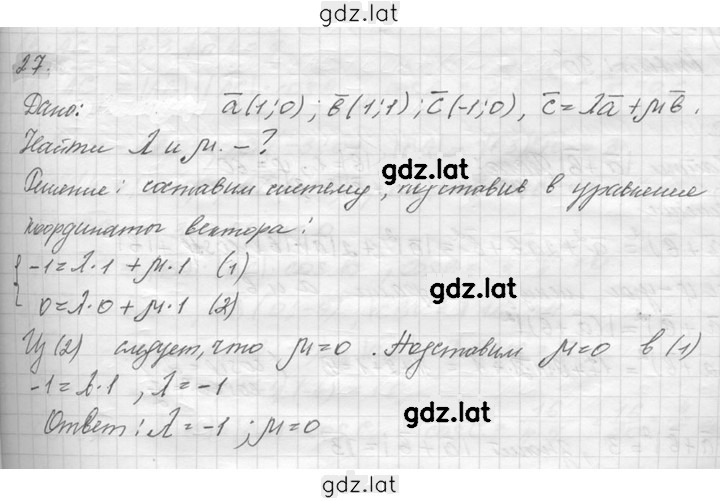 gdz.lat
27.
Дано: a̅(1;0); b̅(1;1); c̅(-1;0), c̅=λa̅+μb̅.
Найти λ и μ. -?
gdz.lat
Решение: составим систему, подставив в уравнение
координаты вектора:
-1=λ·1+μ·1 (1)
gdz.lat
0=λ·0+μ·1 (2)
Из (2) следует, что μ=0. Подставим μ=0 в (1)
-1=λ·1, λ=-1
gdz.lat
Ответ: λ=-1; μ=0
gdz.lat